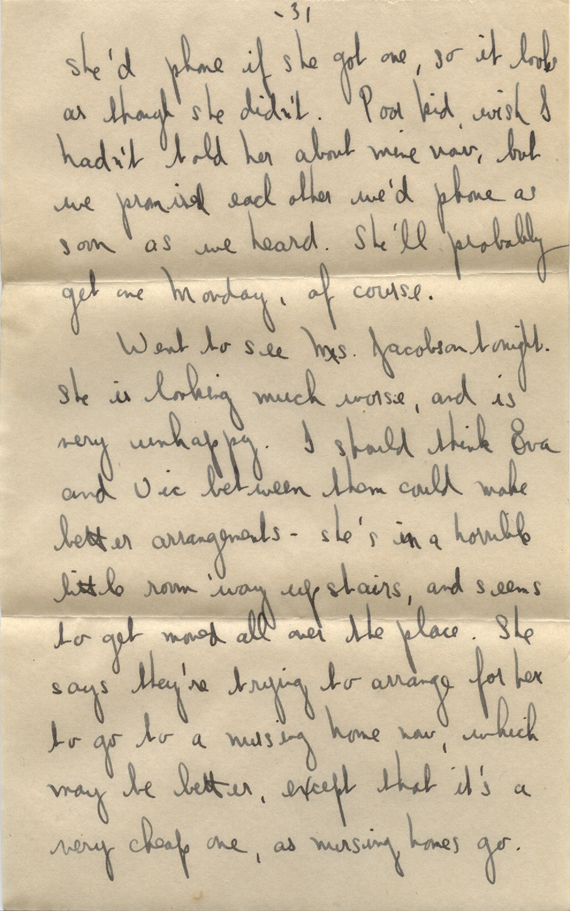 -31
she'd phone if she got one, so it looks
as though she didn't. Poor kid, wish I
hadn't told her about mine now, but
we promised each other we'd phone as
soon as we heard. She'll probably
get one Monday, of course.
Went to see Mrs. Jacobson tonight.
She is looking much worse, and is
very unhappy. I should think Eva
and Vic between them could make
better arrangements - she's in a horrible
little room 'way upstairs, and seems
to get moved all over the place. She
says they're trying to arrange for her
to go to a nursing home now, which
may be better, except that it's a
very cheap one, as nursing homes go.